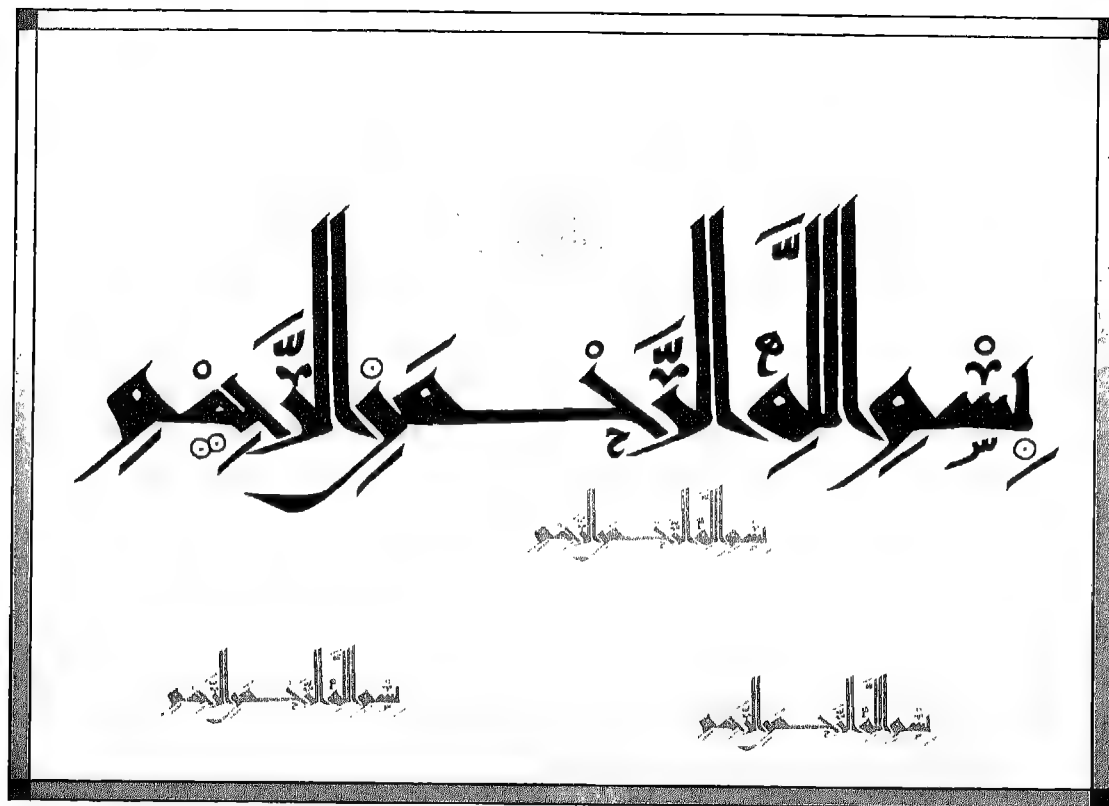 بِسْمِ اللَّهِ الرَّحْمَنِ الرَّحِيمِ
بسم الله الرحمن الرحيم
بسم الله الرحمن الرحيم
بسم الله الرحمن الرحيم